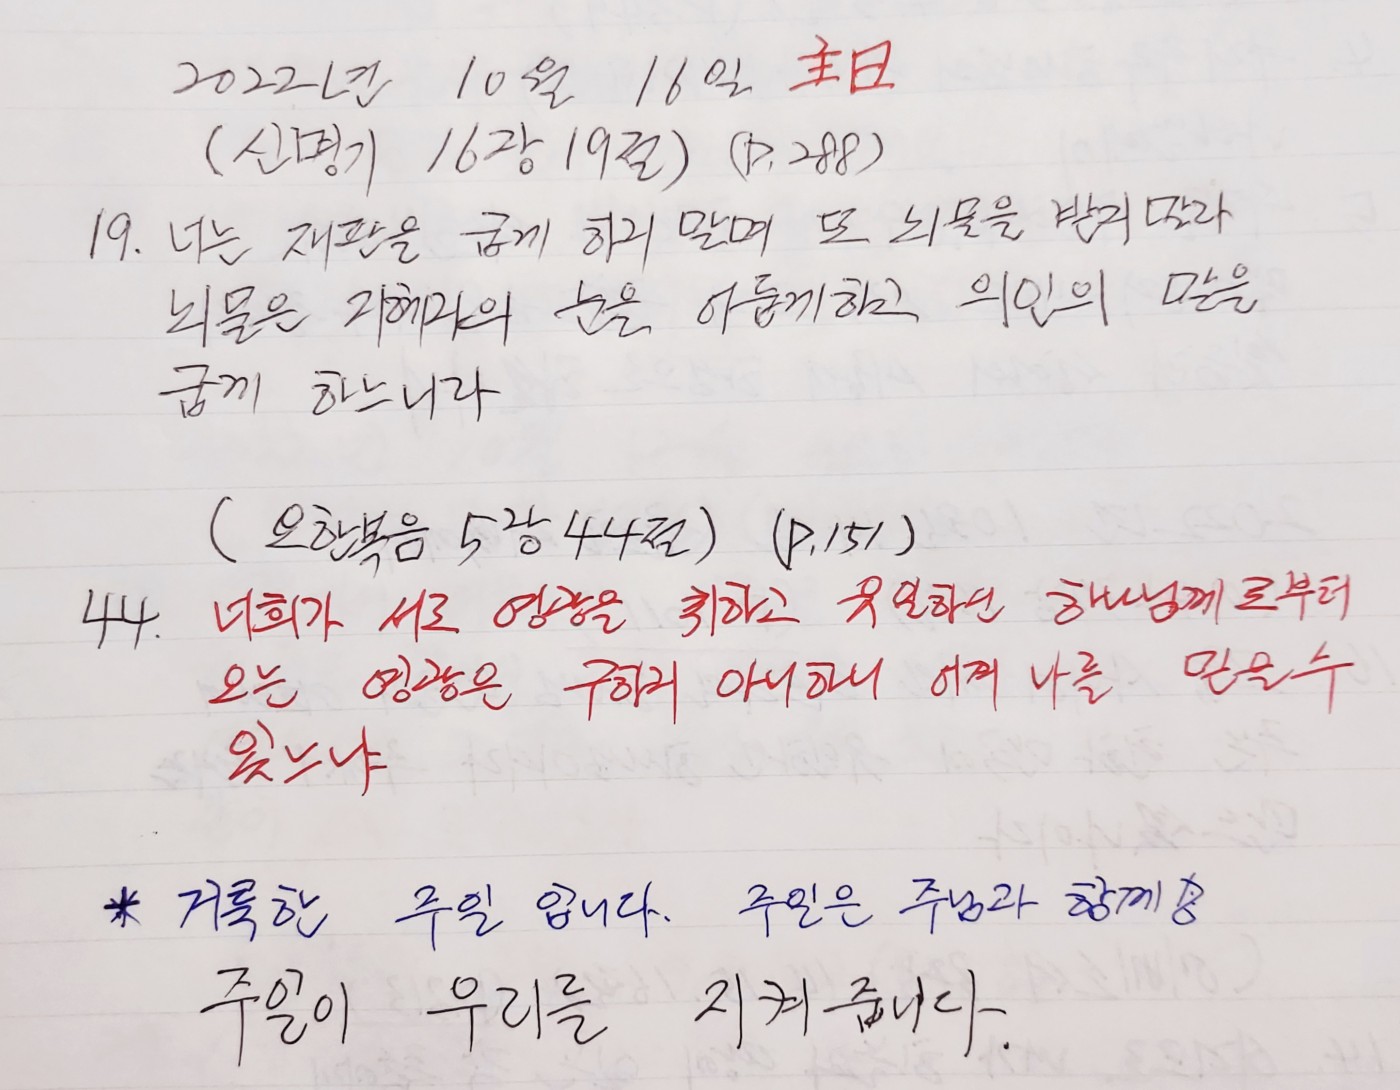 2022년 10월 16일 主日
(신명기 16장 19절) (P.288)
19. 너는 재판을 굽게 하지 말며 또 뇌물을 받지 말라
뇌물은 지혜자의 눈을 어둡게하고 의인의 말을
굽게 하느니라
(요한복음 5장 44절) (P.151)
44. 너희가 서로 영광을 취하고 유일하신 하나님께로부터
오는 영광은 구하지 아니하니 어찌 나를 믿을수
있느냐
* 거룩한 주일 입니다. 주일은 주님과 함께
주일이 우리를 지켜 줍니다.